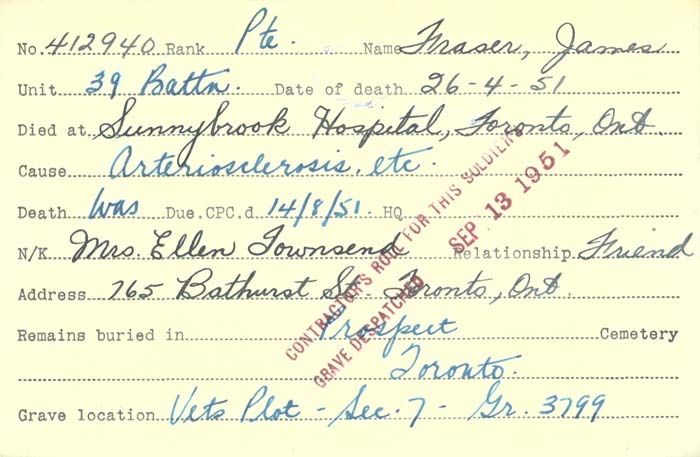 No. 412940 Rank Pte. Name Fraser, James
Unit 39 Battn. Date of death 26-4-51
Died at Sunnybrook Hospital, Toronto, Ont.
Cause Arteriosclerosis, etc.
Death was Due. CPC. d 14/8/51. HQ
N/K Mrs. Ellen Townsend Relationship. Friend
Address 765 Bathurst St. Toronto, Ont.
Remains buried in Prospect Cemetery
Toronto.
Grave location Vets Plot - Sec. 7 - Gr. 3799
CONTRACTOR'S ROLL FOR THIS SOLDIER'S
GRAVE DESPATCHED SEP 13 1951